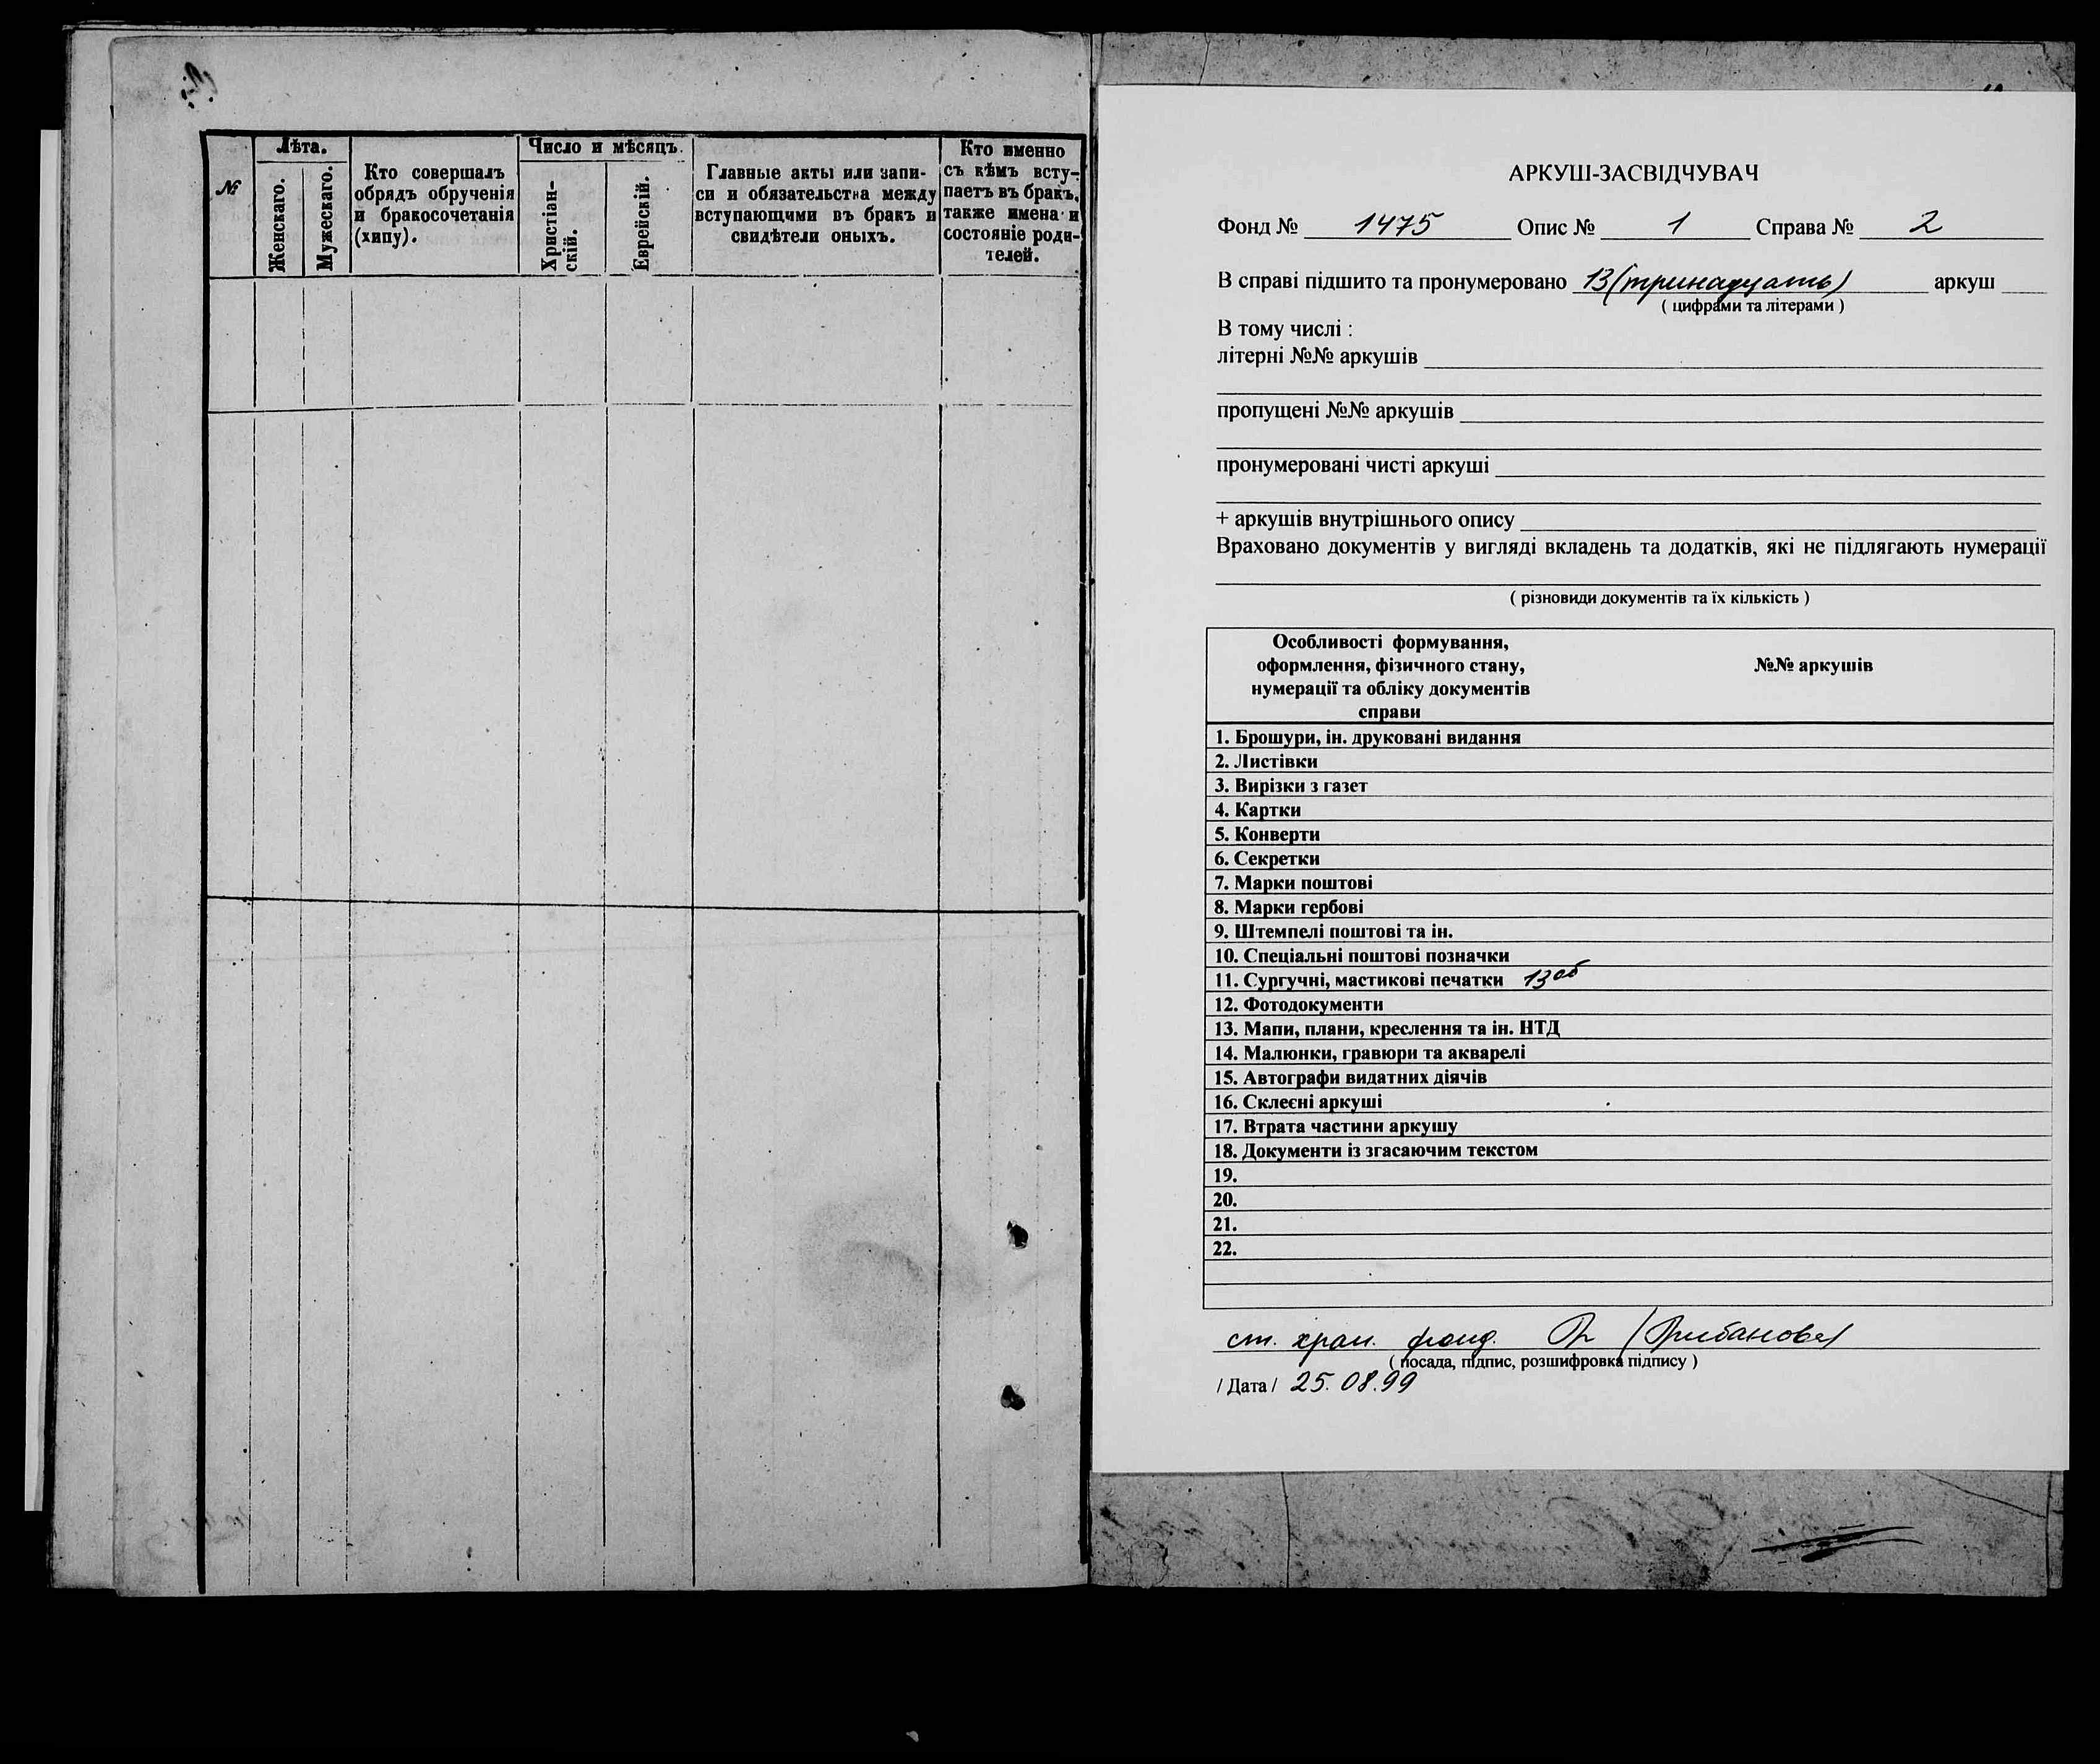 №
Лѣта.
Женскаго.
Мужескаго.
Кто совершалъ
обрядъ обрученія
и бракосочетанія
(хипу).
Число и мѣсяцъ.
Христіан-
скій.
Еврейскій.
Главные акты или запи-
си и обязательства между
вступающими въ бракъ и
свидѣтели оныхъ.
Кто именно
съ кѣмъ всту-
паетъ въ бракъ,
также имена и
состояніе роди-
телей.
АРКУШ-ЗАСВІДЧУВАЧ
Фонд № 1475 Опис № 1 Справа № 2
В справі підшито та пронумеровано 13 (тринадцать) аркуш
( цифрами та літерами )
В тому числі :
літерні №№ аркушів
пропущені №№ аркушів
пронумеровані чисті аркуші
+ аркушів внутрішнього опису
Враховано документів у вигляді вкладень та додатків, які не підлягають нумерації
( різновиди документів та їх кількість )
Особливості формування,
оформлення, фізичного стану,
нумерації та обліку документів
справи
№№ аркушів
1. Брошури, ін. друковані видання
2. Листівки
3. Вирізки з газет
4. Картки
5. Конверти
6. Секретки
7. Марки поштові
8. Марки гербові
9. Штемпелі поштові та ін.
10. Спеціальні поштові позначки
11. Сургучні, мастикові печатки 13 об
12. Фотодокументи
13. Мапи, плани, креслення та ін. НТД
14. Малюнки, гравюри та акварелі
15. Автографи видатних діячів
16. Склеєні аркуші
17. Втрата частини аркушу
18. Документи із згасаючим текстом
19.
20.
21.
22.
ст. хран. фонд.
( посада, підпис, розшифровка підпису )
/ Дата / 25.08.99